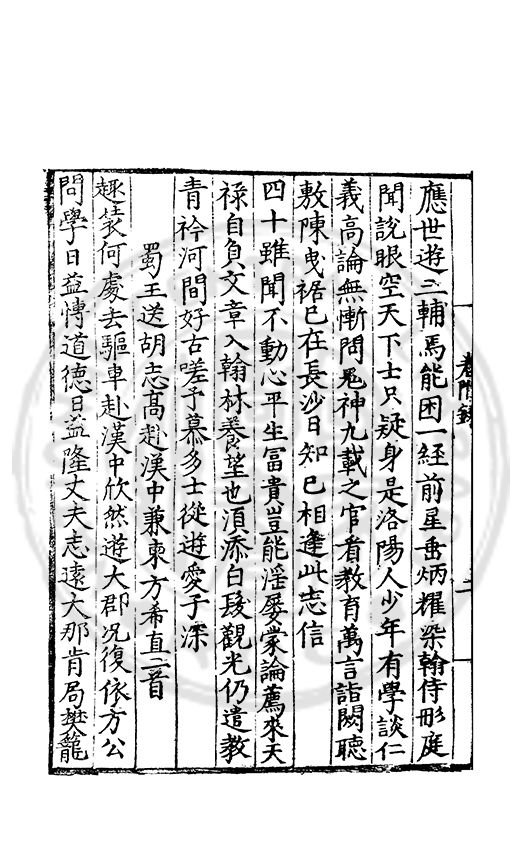 應世遊三輔焉能困一經前星垂炳耀染翰侍彤庭
聞說眼空天下士只疑身是洛陽人少年有學談仁
義高論無慚問鬼神九載之官看教育萬言詣闕聽
敷陳曳裾已在長沙日知己相逢此志信
四十雖聞不動心平生富貴豈能淫屡蒙論薦來天
祿自負文章入翰林養望也須添白髮觀光仍遣教
青衿河間好古嗟予慕多士從遊愛子深
蜀王送胡志高赴漢中兼柬方希直二首
趣裝何處去驅車赴漢中欣然遊大郡况復依方公
問學日益慱道德日益隆丈夫志遠大那肯局樊籠
附錄
二